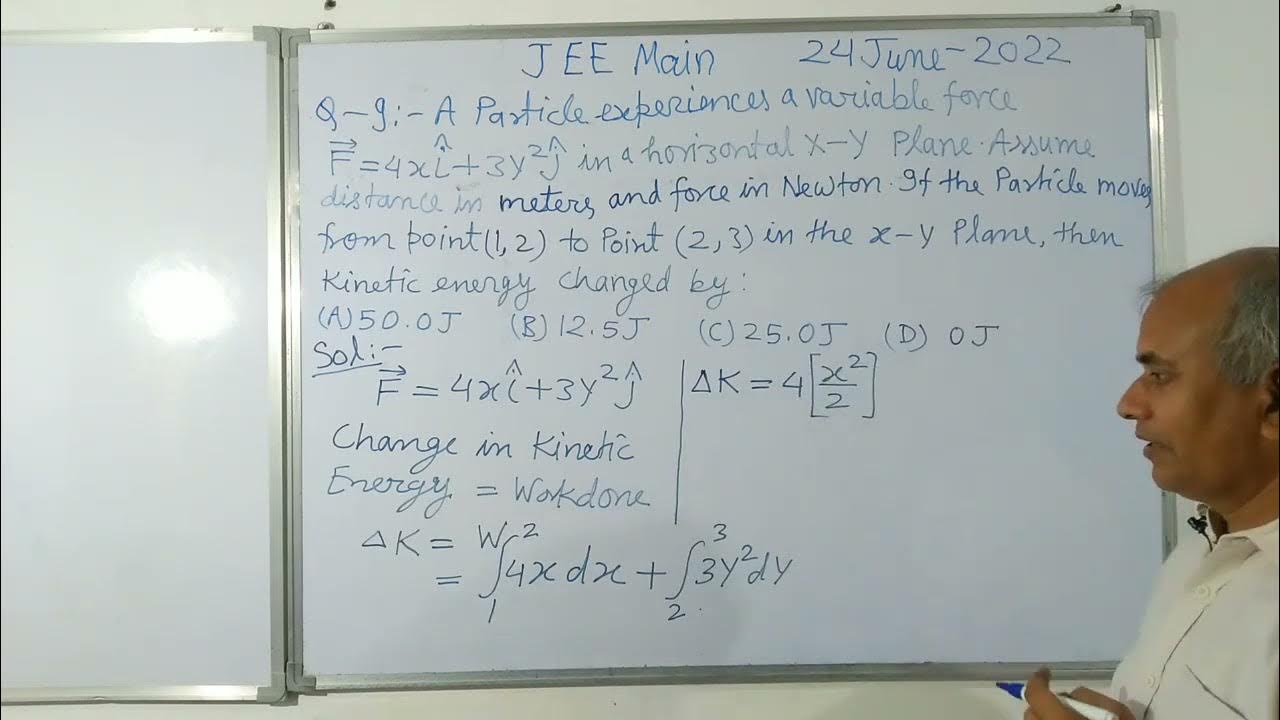 JEE Main 24 June-2022
Q-9:- A Particle experiences a variable force
F⃗ = 4xî + 3y²ĵ in a horizontal X-Y Plane. Assume
distance in meters and force in Newton. If the Particle moves
from point (1, 2) to Point (2, 3) in the x-y Plane, then
Kinetic energy changed by:
(A) 50.0J (B) 12.5J (C) 25.0J (D) 0J
Sol:-
F⃗ = 4xî + 3y²ĵ
Change in Kinetic
Energy = Workdone
ΔK = W
= ∫₁² 4x dx + ∫₂³ 3y² dy
ΔK = 4[x²/2]